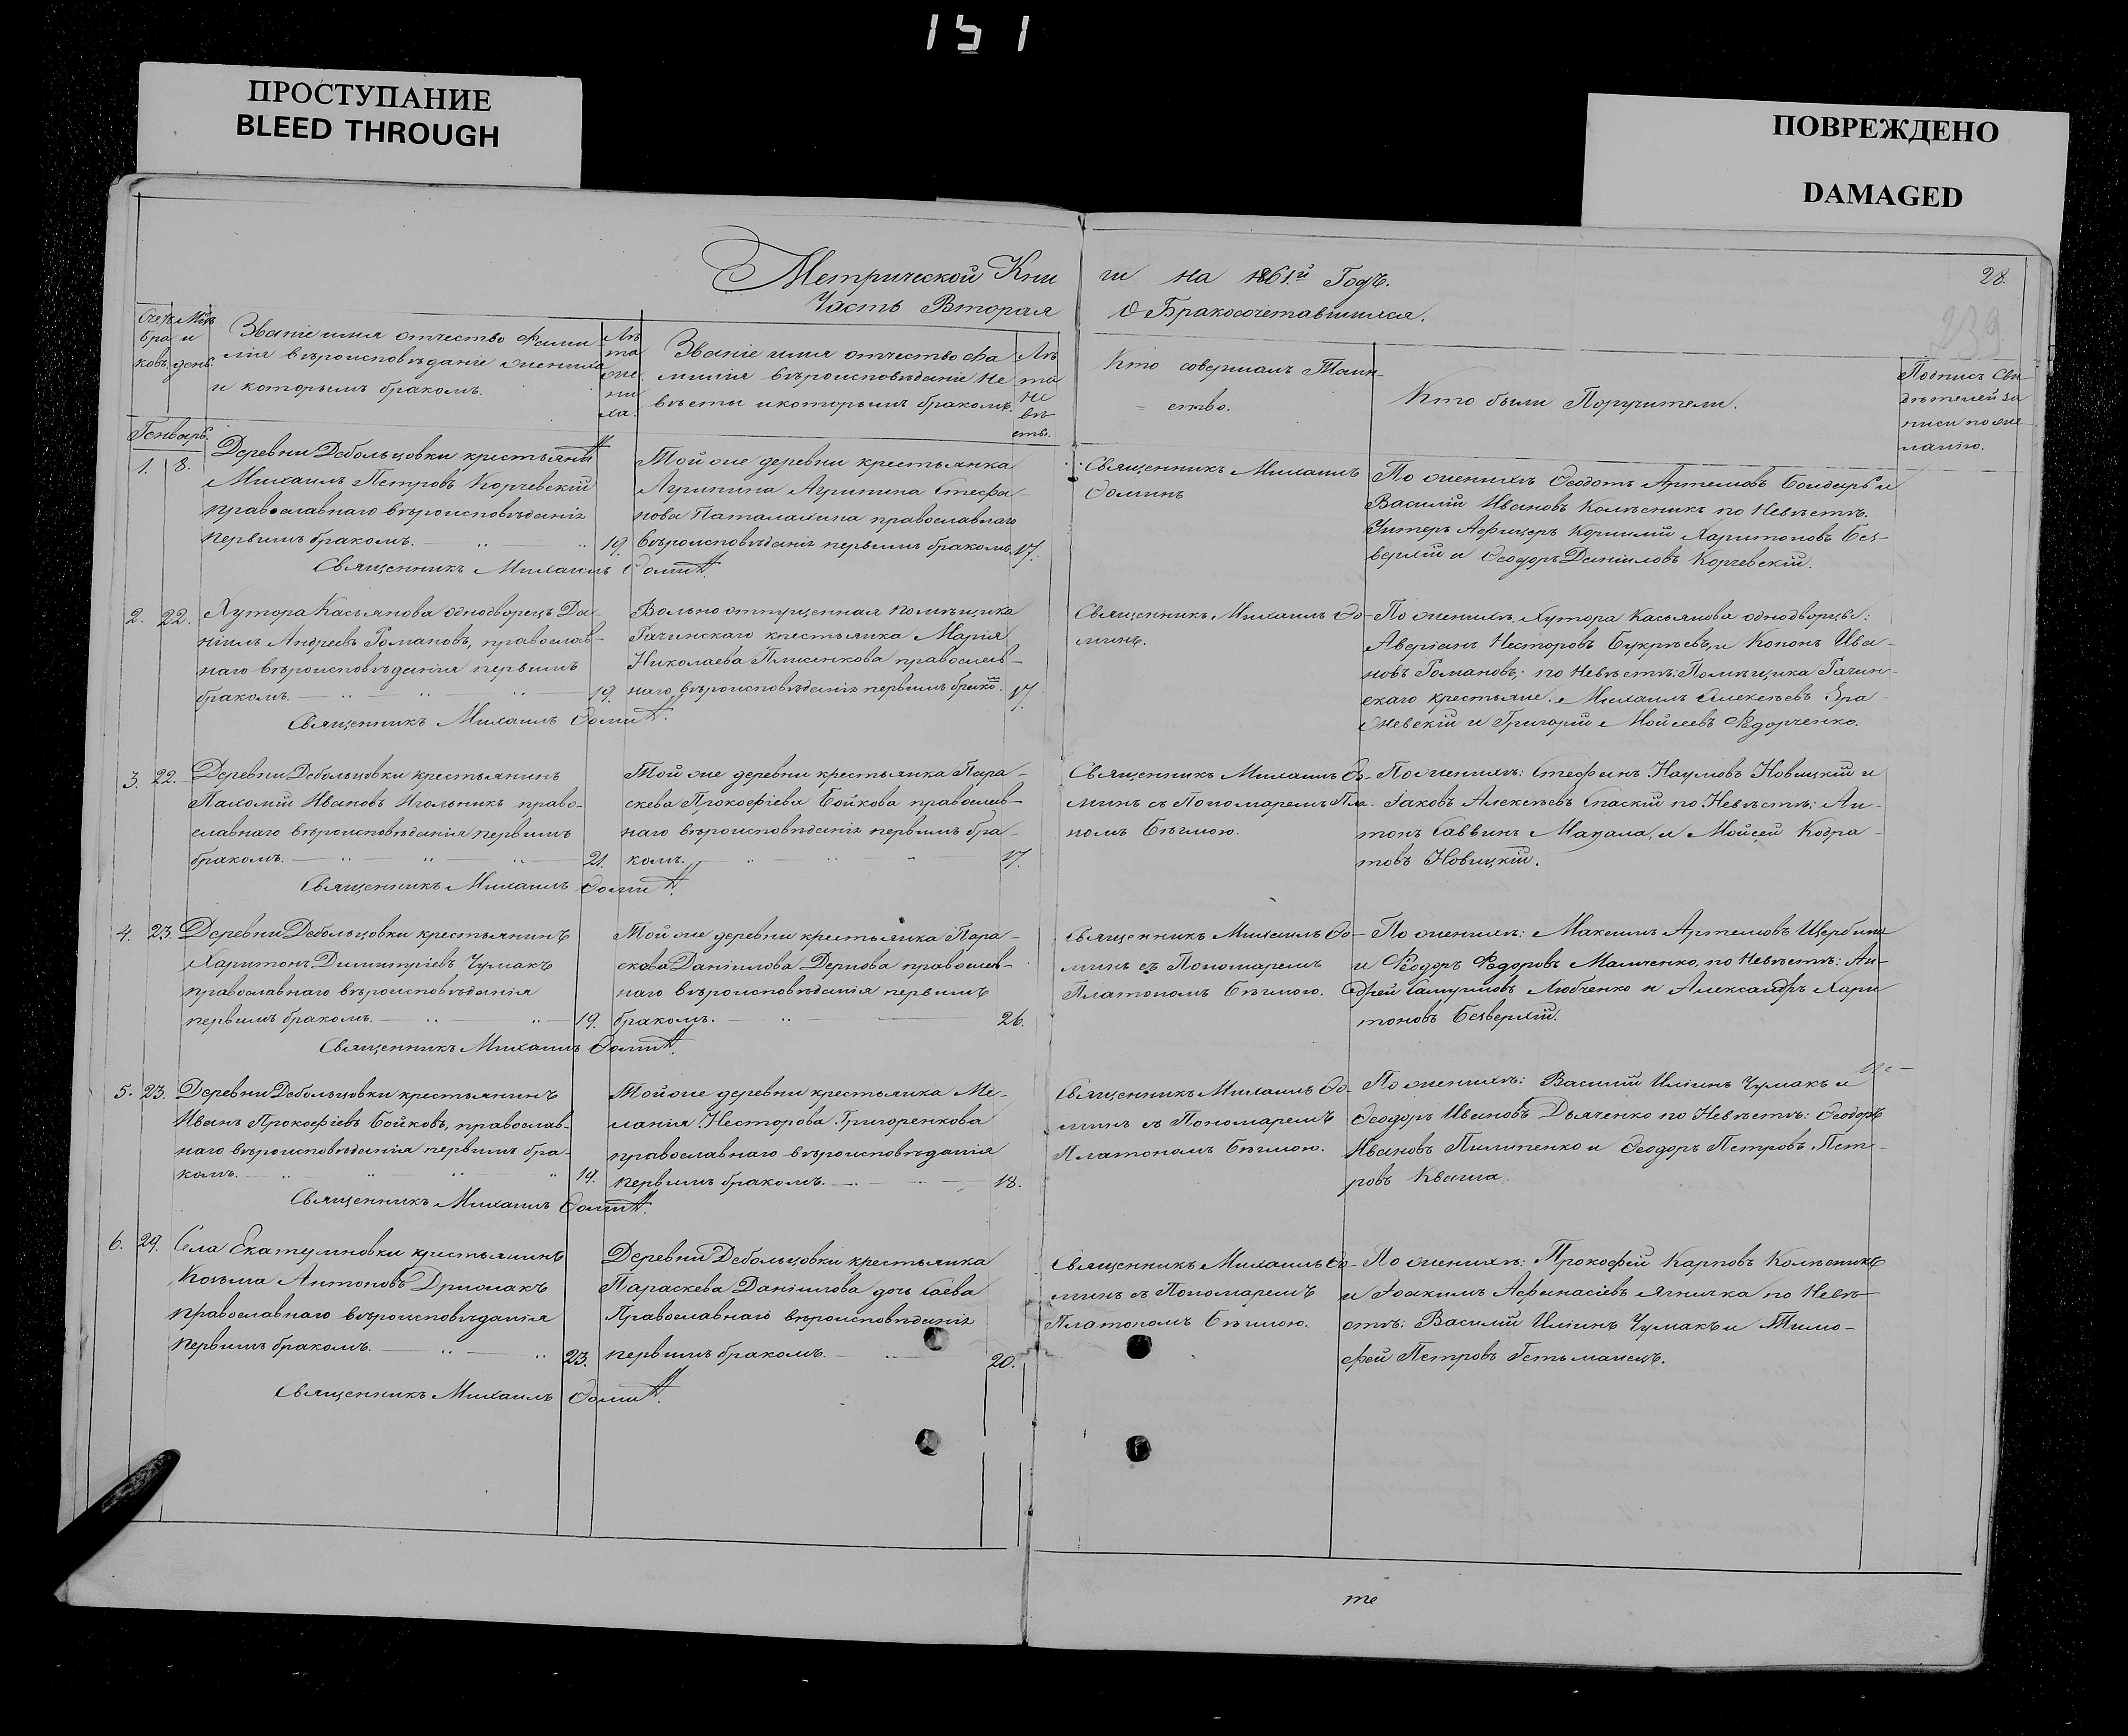 151
ПРОСТУПАНИЕ
BLEED THROUGH
ПОВРЕЖДЕНО
DAMAGED
Метрической Кни
ги на 1861й Годъ.
28.
239
Часть Вторая
О Бракосочетавшихся.
Счетъ бра ковъ.
Мѣс и день.
Званіе имя отчество фами
лія вѣроисповѣданіе жениха
и которымъ бракомъ.
Лѣ
та
же
ни
ха.
Званіе имя отчество фа
милія вѣроисповѣданіе не
вѣсты и которымъ бракомъ.
Лѣ
та
не
вѣ
сты.
Кто совершалъ Таин-
ство.
Кто были Поручители.
Подпись Сви
дѣтелей за
писи по же
ланію.
Генварь.
1. 8.
Деревни Дебольцовки крестьянинъ
Михаилъ Петровъ Корчевскій
православнаго вѣроисповѣданія
первымъ бракомъ. 19.
Той же деревни крестьянка
Агрипина Агрипина Стефа-
нова Паталахина православнаго
вѣроисповѣданія первымъ бракомъ. 17.
Священникъ Михаилъ
Ѳоминъ
По женихѣ Ѳеодотъ Артемовъ Бондарь и
Василій Ивановъ Колѣсникъ по Невѣстѣ.
Унтеръ Афицеръ Корнилій Харитоновъ Без-
верхій и Ѳеодоръ Даніиловъ Корчевскій.
Священникъ Михаилъ Ѳоминъ.
2. 22.
Хутора Касьянова однодворецъ Да-
ніилъ Андреевъ Романовъ, православ-
наго вѣроисповѣданія первымъ
бракомъ. 19.
Вольно отпущенная помѣщика
Гачинскаго крестьянка Марія
Николаева Плисенкова православ-
наго вѣроисповѣданія первымъ брако. 17.
Священникъ Михаилъ Ѳо-
минъ.
По женихѣ, Хутора Касьянова однодворцы:
Аверіанъ Несторовъ Букрѣевъ, и Кононъ Ива-
новъ Романовъ; по Невѣстѣ: Помѣщика Гачин-
скаго крестьяне. Михаилъ Алексѣевъ
и Григорій Мойсеевъ Ѳедорченко.
Священникъ Михаилъ Ѳоминъ.
3. 22.
Деревни Дебольцовки крестьянинъ
Пахомій Ивановъ Игольникъ право-
славнаго вѣроисповѣданія первымъ
бракомъ. 21.
Той же деревни крестьянка Пара-
скева Прокофіева Бойкова православ-
наго вѣроисповѣданія первымъ бра-
комъ. 17.
Священникъ Михаилъ Ѳо-
минъ съ Пономаремъ Пла-
номъ Бѣгмою.
По женихѣ: Стефанъ Наумовъ Новицкій и
Іаковъ Алексѣевъ Спаскій по Невѣстѣ: Ан-
тонъ Саввинъ и Мойсей Кодра-
товъ Новицкій.
Священникъ Михаилъ Ѳоминъ.
4. 23.
Деревни Дебольцовки крестьянинъ
Харитонъ Димитріевъ Чумакъ
православнаго вѣроисповѣданія
первымъ бракомъ. 19.
Той же деревни крестьянка Пара-
скева Даніилова Дернова православ-
наго вѣроисповѣданія первымъ
бракомъ. 26.
Священникъ Михаилъ Ѳо-
минъ съ Пономаремъ
Платономъ Бѣгмою.
По женихѣ: Максимъ Артемовъ Щербина
и Ѳеодоръ Ѳедоровъ Мамченко, по Невѣстѣ: Ан-
дрей Любченко и Александръ Хари
тоновъ Безверхій.
Священникъ Михаилъ Ѳоминъ.
5. 23.
Деревни Дебольцовки крестьянинъ
Иванъ Прокофіевъ Бойковъ, православ-
наго вѣроисповѣданія первымъ бра-
комъ. 19.
Той же деревни крестьянка Ме-
ланія Несторова Григоренкова
православнаго вѣроисповѣданія
первымъ бракомъ. 18.
Священникъ Михаилъ Ѳо-
минъ съ Пономаремъ
Платономъ Бѣгмою.
По женихѣ: Василій Иліинъ Чумакъ и
Ѳеодоръ Ивановъ Дьяченко по Невѣстѣ: Ѳеодоръ
Ивановъ Пилипенко и Ѳеодоръ Петровъ Пет-
ровъ Кваша.
Священникъ Михаилъ Ѳоминъ.
6. 29.
Села Екатериновки крестьянинъ
Козьма Антоновъ Дрижакъ
православнаго вѣроисповѣданія
первымъ бракомъ. 23.
Деревни Дебольцовки крестьянка
Параскева Даніилова дочь Саева
Православнаго вѣроисповѣданія
первымъ бракомъ. 20.
Священникъ Михаилъ Ѳо-
минъ съ Пономаремъ
Платономъ Бѣгмою.
По женихѣ: Прокофій Карповъ Колѣсникъ
и Іоакимъ Афанасіевъ Ягничка по Невѣ-
стѣ: Василій Иліинъ Чумакъ и Тимо-
фей Петровъ Гетьманецъ.
Священникъ Михаилъ Ѳоминъ.
те